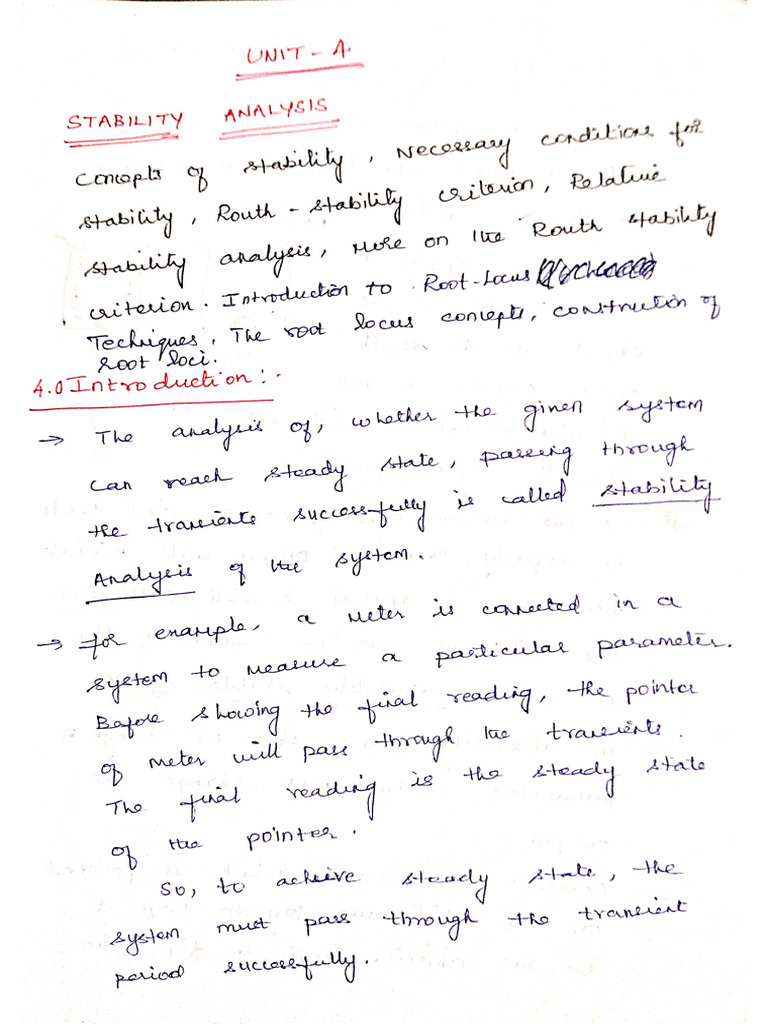 UNIT - 4.
STABILITY ANALYSIS
Concepts of stability, Necessary conditions for
stability, Routh - stability criterion, Relative
stability analysis, More on the Routh stability
criterion. Introduction to Root-Locus
Techniques, The root locus concepts, construction of
root loci.
4.0 Introduction :-
→ The analysis of, whether the given system
can reach steady state, passing through
the transients successfully is called stability
Analysis of the system.
→ for example, a meter is connected in a
system to measure a particular parameter.
Before showing the final reading, the pointer
of meter will pass through the transients.
The final reading is the steady state
of the pointer.
So, to achieve steady state, the
system must pass through the transient
period successfully.